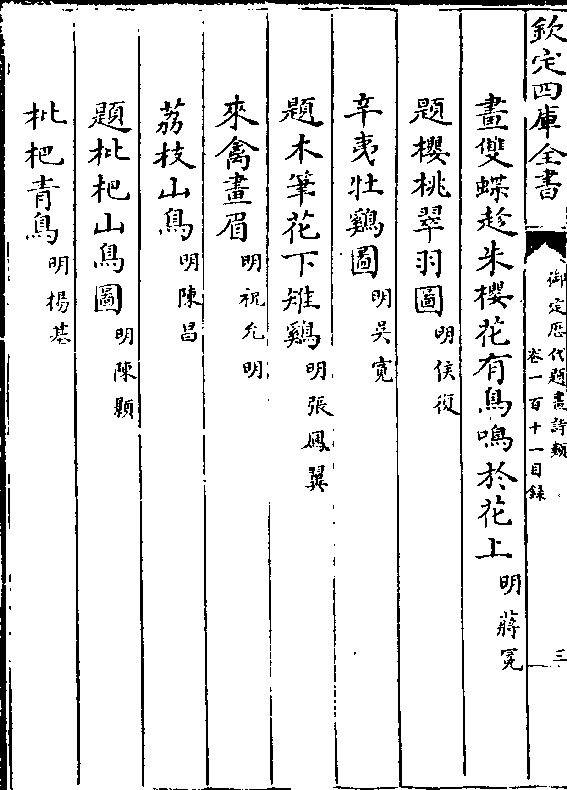 欽定四庫全書
御定歷代題畫詩類
卷一百十一目録
三
畫雙蝶趁朱櫻花有鳥鳴於花上 明蔣冕
題櫻桃翠羽圖 明侯復
辛夷壯鷄圖 明吳寛
題木筆花下雉鷄 明張鳳翼
來禽畫眉 明祝允明
荔枝山鳥 明陳昌
題枇杷山鳥圖 明陳顥
枇杷青鳥 明楊基